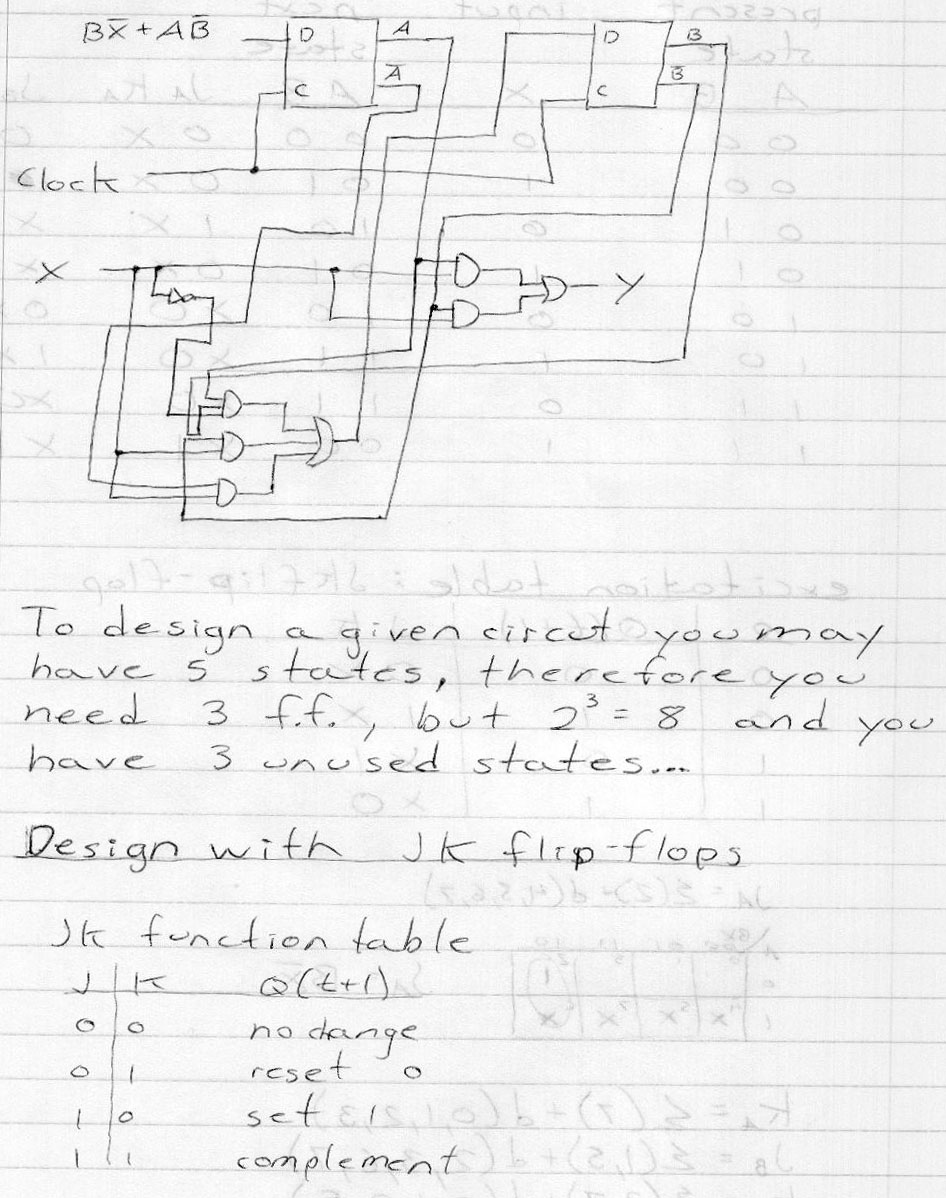 BX̅ + AB̅ D A D B
A̅ B̅
C C
Clock
X Y
To design a given circut you may
have 5 states, therefore you
need 3 f.f., but 2³ = 8 and you
have 3 unused states...
Design with JK flip-flops
JK function table
J K Q(t+1)
0 0 no change
0 1 reset 0
1 0 set 1
1 1 complement